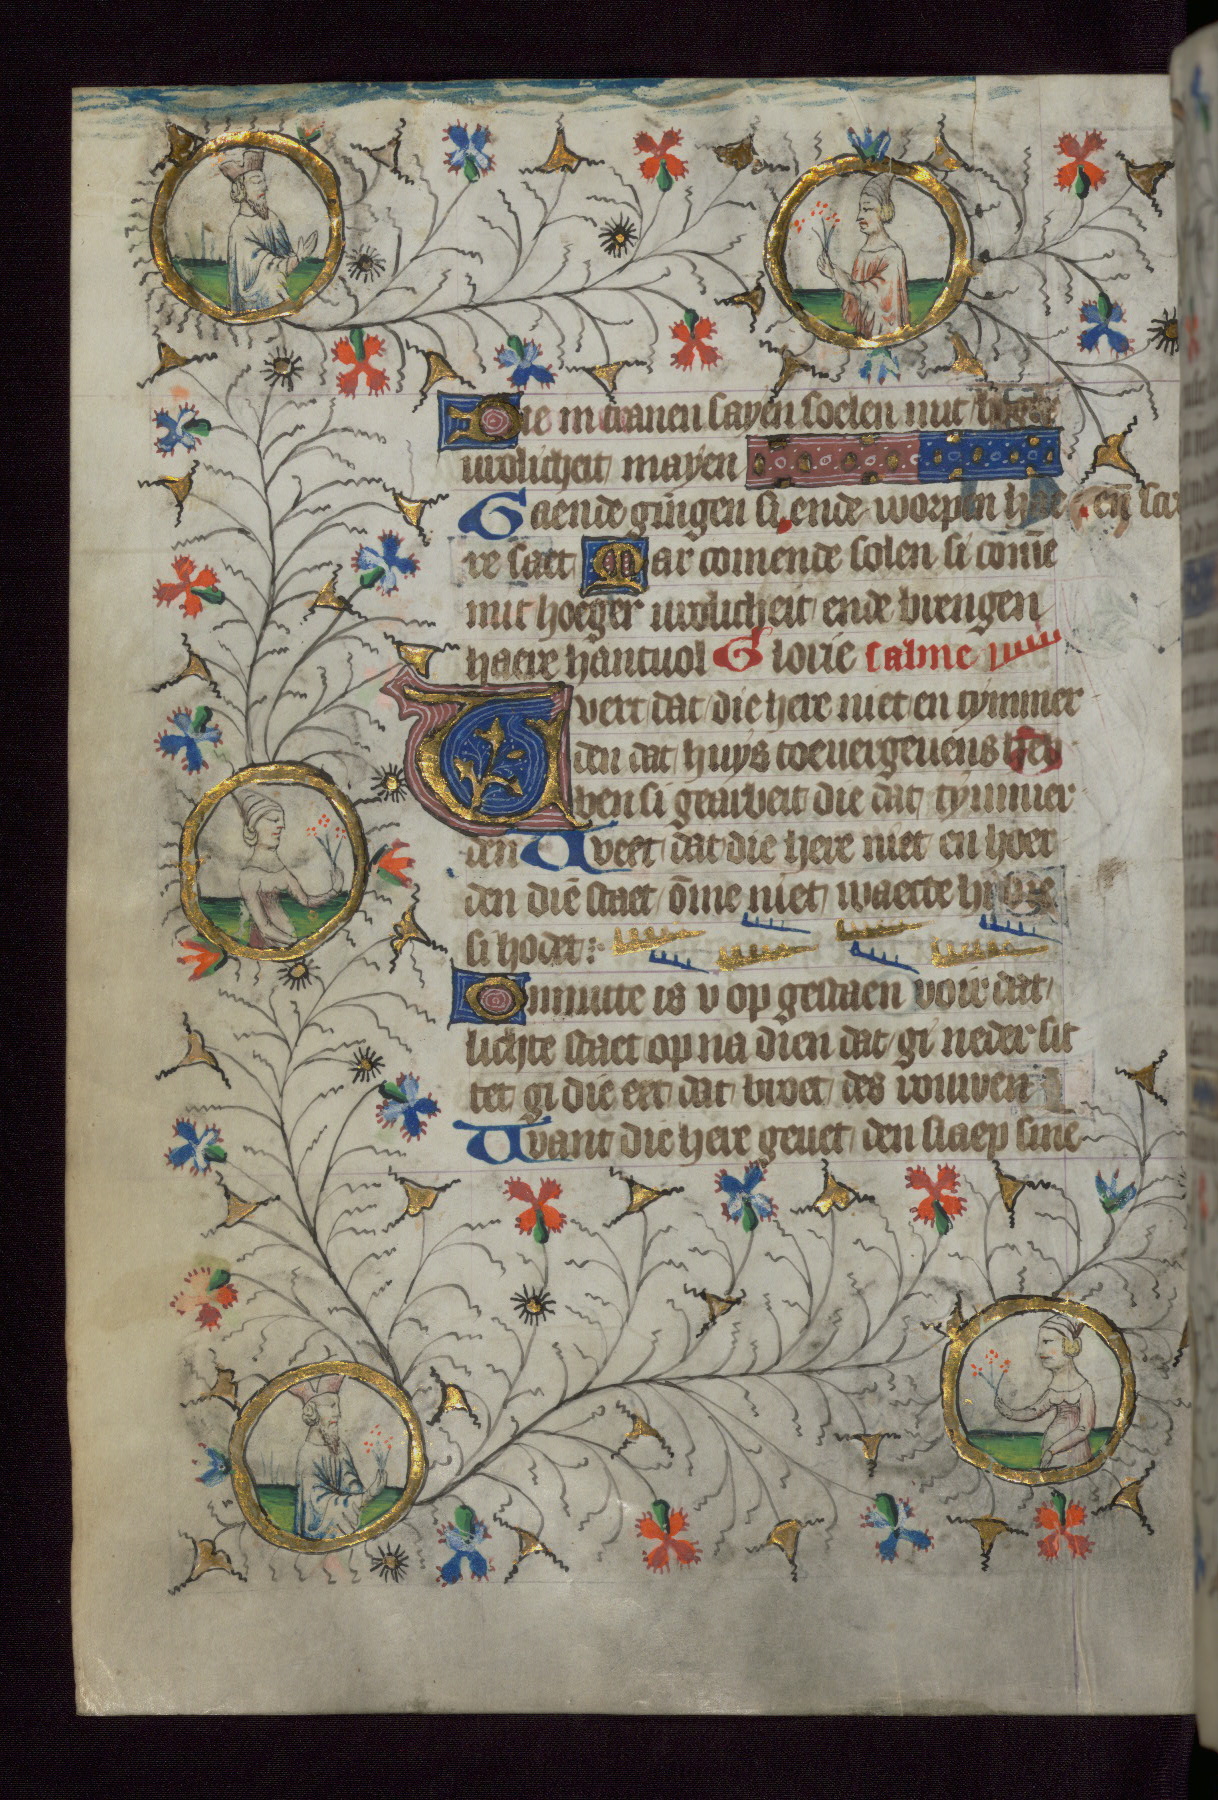 Die in tranen sayen soelen mit hoge
urolicheit mayen
Gaende gingen si ende worpen hae en̄ sa
re saet Mar comende solen si comē
mit hoeger urolicheit ende brengen
haere hantuol Glorie salme
Uvert dat die here niet en tymmer
den dat huys toeuergeuens heb
ben si gearbeit die dat tymmer
den Uvert dat die here niet en hoer
den diē staet ōme niet waecte hi die
si hodet
Omnutte is v op gestaen voir dat
lichte staet op na dien dat gi neder sit
tet gi die eet dat broet des rouwen
Uvant die here geuet den slaep sinē